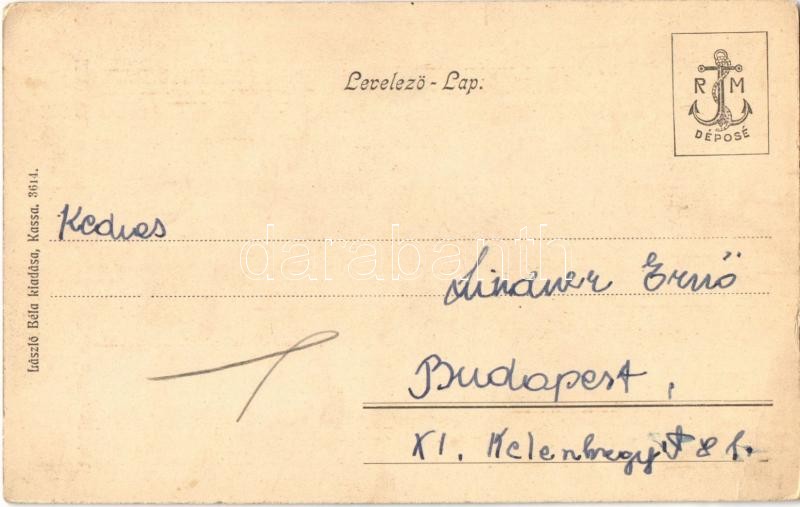 Levelező-Lap.
R M
DÉPOSÉ
László Béla kiadása, Kassa. 3614.
Kedves
darabanth
Lindner Ernő
Budapest,
XI. Kelenhegyi